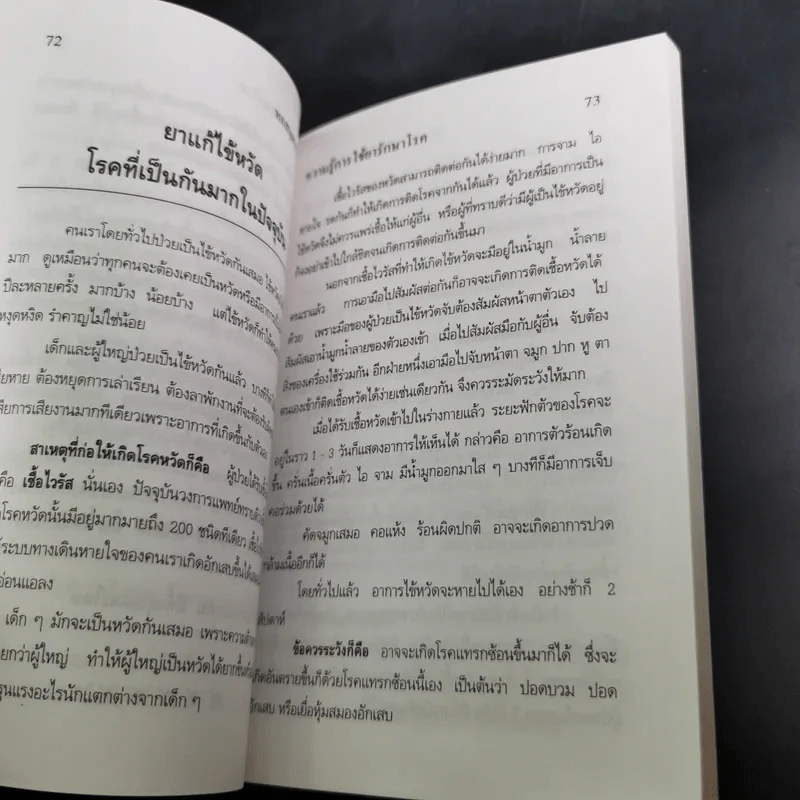 72
ยาแก้ไข้หวัด
โรคที่เป็นกันมากในปัจจุบัน
คนเราโดยทั่วไปป่วยเป็นไข้หวัดกันเสมอ
มาก ดูเหมือนว่าทุกคนจะต้องเคยเป็นหวัดหรือมีอาการ
ปีละหลายครั้ง มากบ้าง น้อยบ้าง แต่ไข้หวัดก็ทำให้
หงุดหงิด รำคาญไม่ใช่น้อย
เด็กและผู้ใหญ่ป่วยเป็นไข้หวัดกันแล้ว
ต้องหยุดการเล่าเรียน ต้องลาพักงานที่จะต้อง
เสียการเสียงานมากทีเดียวเพราะอาการที่เกิดขึ้นกับตัวเอง
สาเหตุที่ก่อให้เกิดโรคหวัดก็คือ ผู้ป่วยได้รับ
คือ เชื้อไวรัส นั่นเอง ปัจจุบันวงการแพทย์ทราบ
โรคหวัดนั้นมีอยู่มากมายถึง 200 ชนิดทีเดียว
ระบบทางเดินหายใจของคนเราเกิดอักเสบขึ้นได้
อ่อนแอลง
เด็ก ๆ มักจะเป็นหวัดกันเสมอ เพราะความต้าน
กว่าผู้ใหญ่ ทำให้ผู้ใหญ่เป็นหวัดได้ยากขึ้น
รุนแรงอะไรนักแตกต่างจากเด็ก ๆ
73
ความรู้การใช้ยารักษาโรค
เชื้อไวรัสของหวัดสามารถติดต่อกันได้ง่ายมาก การจาม ไอ
หายใจ รดกันก็ทำให้เกิดการติดโรคจากกันได้แล้ว ผู้ป่วยที่มีอาการเป็น
ไข้หวัดจึงไม่ควรแพร่เชื้อให้แก่ผู้อื่น หรือผู้ที่ทราบดีว่ามีผู้เป็นไข้หวัดอยู่
ก็จงอย่าเข้าไปใกล้ชิดจนเกิดการติดต่อกันขึ้นมา
นอกจากเชื้อไวรัสที่ทำให้เกิดไข้หวัดจะมีอยู่ในน้ำมูก น้ำลาย
คนเราแล้ว การเอามือไปสัมผัสต่อกันก็อาจจะเกิดการติดเชื้อหวัดได้
ด้วย เพราะมือของผู้ป่วยเป็นไข้หวัดจับต้องสัมผัสหน้าตาตัวเอง ไป
สัมผัสเอาน้ำมูกน้ำลายของตัวเองเข้า เมื่อไปสัมผัสมือกับผู้อื่น จับต้อง
สิ่งของเครื่องใช้ร่วมกัน อีกฝ่ายหนึ่งเอามือไปจับหน้าตา จมูก ปาก หู ตา
ตนเองเข้าก็ติดเชื้อหวัดได้ง่ายเช่นเดียวกัน จึงควรระมัดระวังให้มาก
เมื่อได้รับเชื้อหวัดเข้าไปในร่างกายแล้ว ระยะฟักตัวของโรคจะ
อยู่ในราว 1 - 3 วันก็แสดงอาการให้เห็นได้ กล่าวคือ อาการตัวร้อนเกิด
ขึ้น ครั่นเนื้อครั่นตัว ไอ จาม มีน้ำมูกออกมาใส ๆ บางทีก็มีอาการเจ็บ
คอร่วมด้วยได้
คัดจมูกเสมอ คอแห้ง ร้อนผิดปกติ อาจจะเกิดอาการปวด
กล้ามเนื้ออีกก็ได้
โดยทั่วไปแล้ว อาการไข้หวัดจะหายไปได้เอง อย่างช้าก็ 2
สัปดาห์
ข้อควรระวังก็คือ อาจจะเกิดโรคแทรกซ้อนขึ้นมาก็ได้ ซึ่งจะ
เกิดอันตรายขึ้นก็ด้วยโรคแทรกซ้อนนี้เอง เป็นต้นว่า ปอดบวม ปอด
อักเสบ หรือเยื่อหุ้มสมองอักเสบ